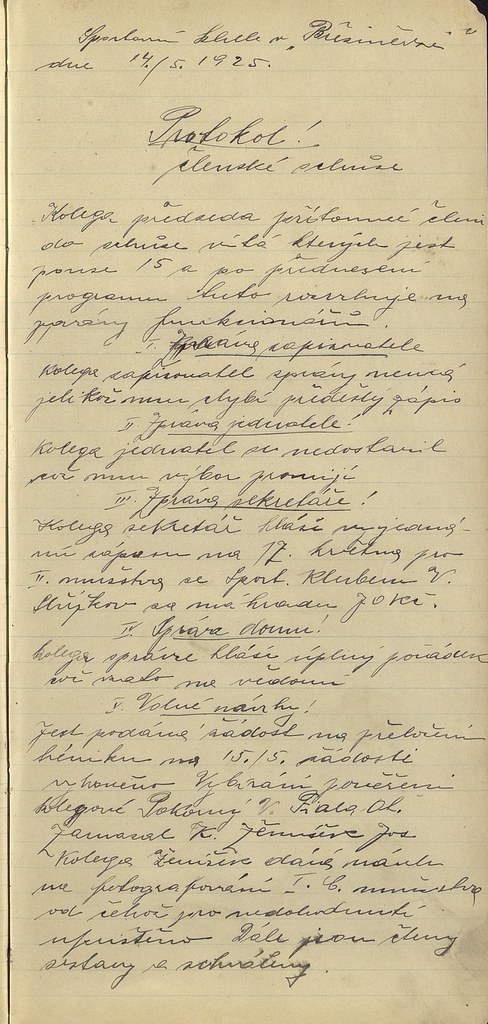 Sportovní klub v "Březiněvsi"
dne 14./5. 1925.
Protokol!
členské schůze
Kolega předseda přítomné členy
do schůze vítá kterých jest
pouze 15 a po přednesení
programu tuto rozvrhuje na
zprávy funkcionářů.
I. Zpráva zapisovatele
Kolega zapisovatel zprávy nemá
jelikož mu chybí předešlý zápis
II Zpráva jednatele!
Kolega jednatel se nedostavil
což mu výbor promíjí
III. Zpráva sekretáře!
Kolega sekretář hlásí vyjedná-
ní zápasu na 17. května pro
II. mužstva se Sport. Klubem V.
za náhradu 70 Kč.
IV Správce domu!
Kolega správce hlásí úplný pořádek
což vzato na vědomí
V. Volné návrhy!
Jest podána žádost na přeložení
na 15./5. žádosti
vyhověno Vybírání pověřeni
kolegové Pokorný V. Fiala Ol.
K. Ženíšek Jos
Kolega Ženíšek dává návrh
na fotografování I. C. mužstva
od čehož pro nedohodnutí
upuštěno Dále jsou čteny
sestavy a schváleny.